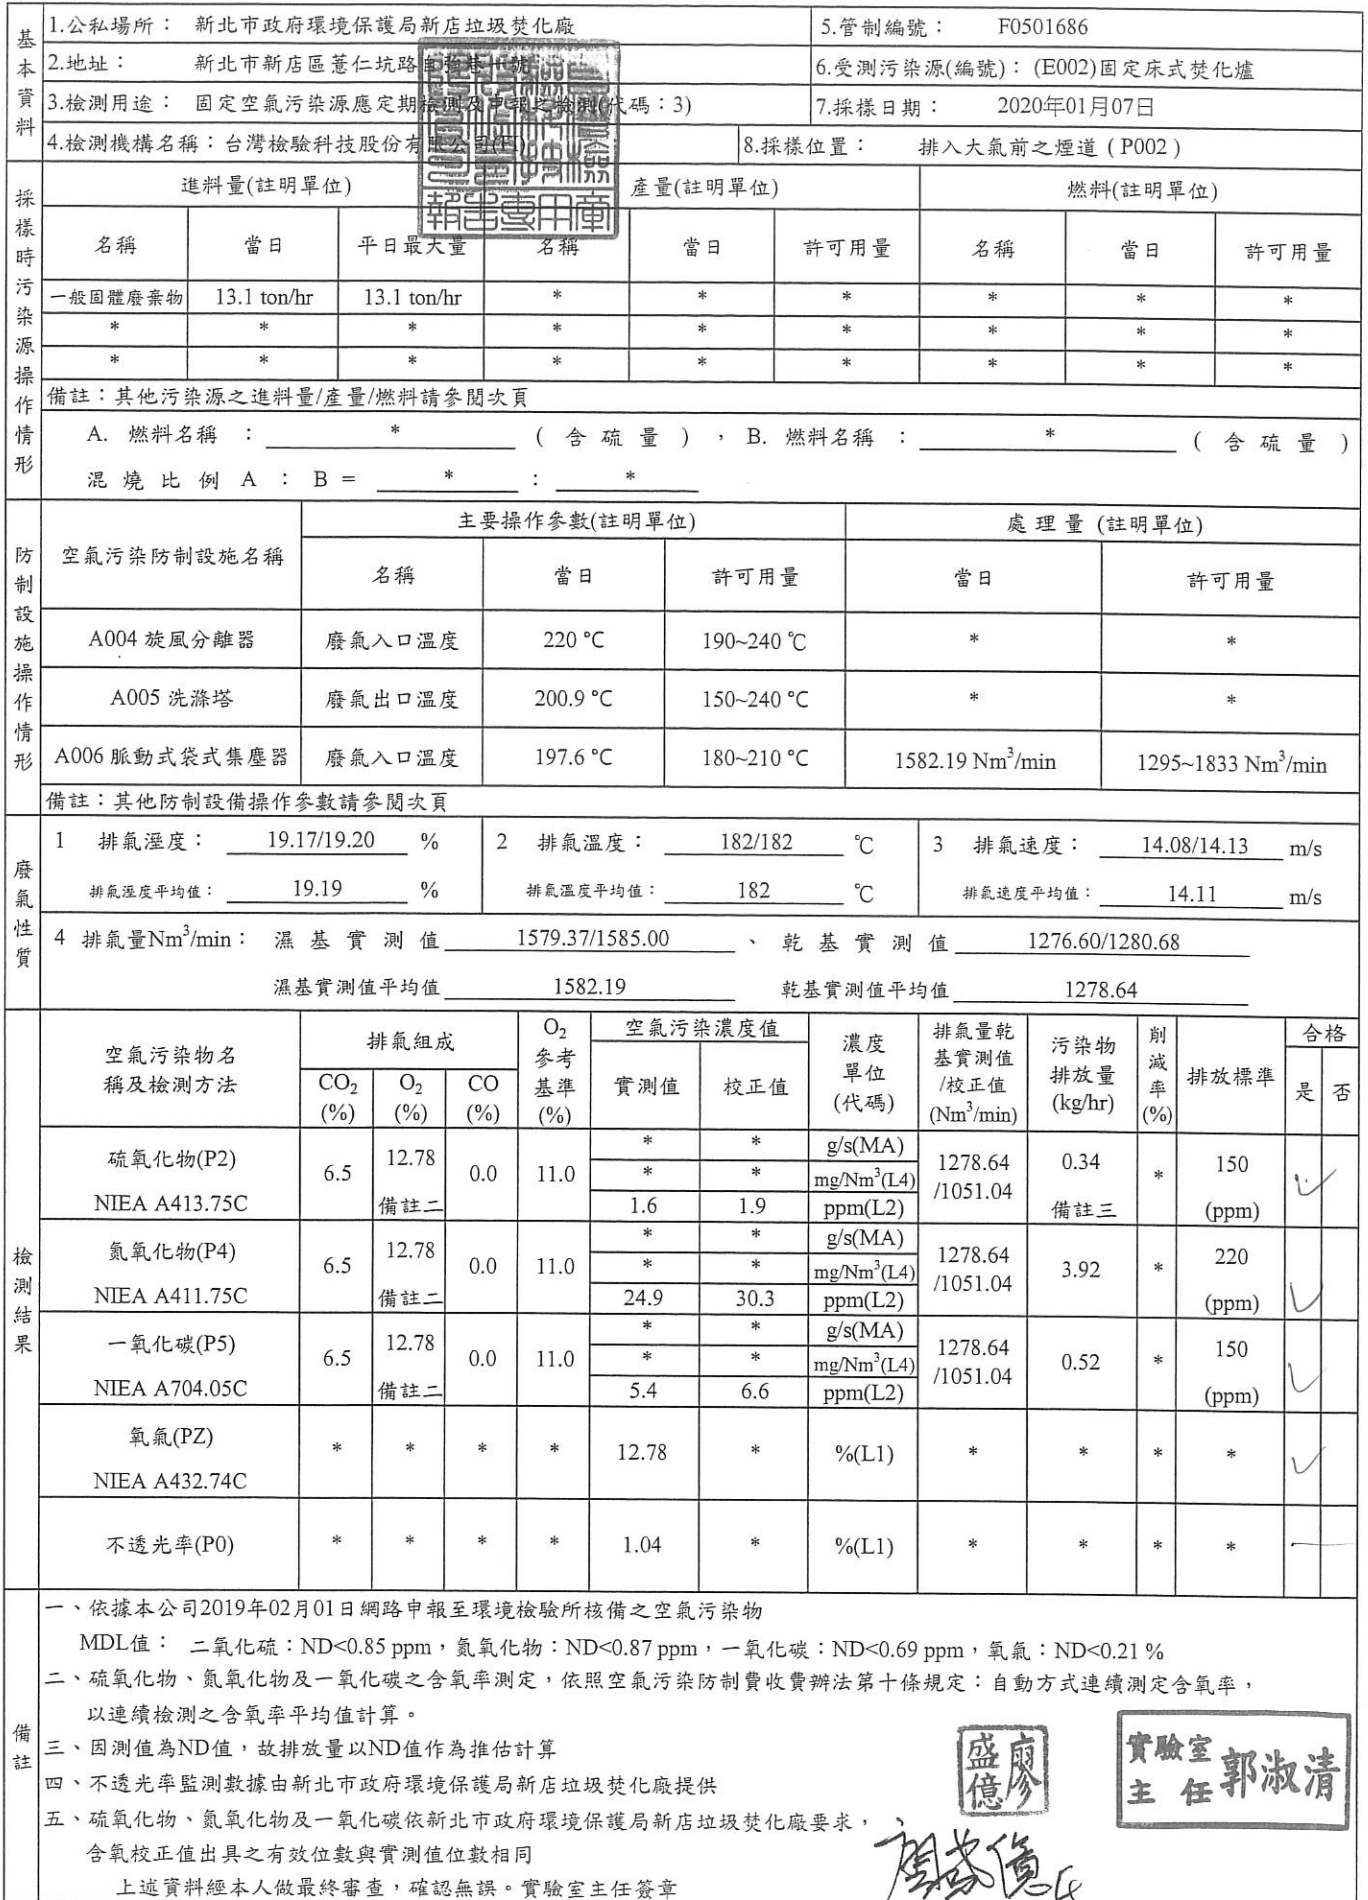 基本資料
1.公私場所： 新北市政府環境保護局新店垃圾焚化廠 5.管制編號： F0501686
2.地址： 新北市新店區薏仁坑路自強巷一號 6.受測污染源(編號)： (E002)固定床式焚化爐
3.檢測用途： 固定空氣污染源應定期檢測及申報之檢測(代碼：3) 7.採樣日期： 2020年01月07日
4.檢測機構名稱：台灣檢驗科技股份有限公司(FI) 8.採樣位置： 排入大氣前之煙道 ( P002 )
報告專用章
採樣時污染源操作情形
進料量(註明單位) 產量(註明單位) 燃料(註明單位)
名稱 當日 平日最大量 名稱 當日 許可用量 名稱 當日 許可用量
一般固體廢棄物 13.1 ton/hr 13.1 ton/hr * * * * * *
* * * * * * * * *
* * * * * * * * *
備註：其他污染源之進料量/產量/燃料請參閱次頁
A. 燃料名稱 ： * ( 含 硫 量 ) ，B. 燃料名稱 ： * ( 含 硫 量 )
混 燒 比 例 A ： B = * : *
防制設施操作情形
空氣污染防制設施名稱 主要操作參數(註明單位) 處 理 量 (註明單位)
名稱 當日 許可用量 當日 許可用量
A004 旋風分離器 廢氣入口溫度 220 °C 190~240 ℃ * *
A005 洗滌塔 廢氣出口溫度 200.9 °C 150~240 °C * *
A006 脈動式袋式集塵器 廢氣入口溫度 197.6 °C 180~210 °C 1582.19 Nm³/min 1295~1833 Nm³/min
備註：其他防制設備操作參數請參閱次頁
廢氣性質
1 排氣溼度： 19.17/19.20 % 2 排氣溫度： 182/182 ℃ 3 排氣速度： 14.08/14.13 m/s
排氣溼度平均值： 19.19 % 排氣溫度平均值： 182 ℃ 排氣速度平均值： 14.11 m/s
4 排氣量Nm³/min： 濕 基 實 測 值 1579.37/1585.00 、 乾 基 實 測 值 1276.60/1280.68
濕基實測值平均值 1582.19 乾基實測值平均值 1278.64
檢測結果
空氣污染物名稱及檢測方法 排氣組成 O₂參考基準(%) 空氣污染濃度值 濃度單位(代碼) 排氣量乾基實測值/校正值(Nm³/min) 污染物排放量(kg/hr) 削減率(%) 排放標準 合格
CO₂(%) O₂(%) CO(%) 實測值 校正值 是 否
* * g/s(MA)
硫氧化物(P2) 6.5 12.78 0.0 11.0 * * mg/Nm³(L4) 1278.64/1051.04 0.34 * 150
NIEA A413.75C 備註二 1.6 1.9 ppm(L2) 備註三 (ppm)
* * g/s(MA)
氮氧化物(P4) 6.5 12.78 0.0 11.0 * * mg/Nm³(L4) 1278.64/1051.04 3.92 * 220
NIEA A411.75C 備註二 24.9 30.3 ppm(L2) (ppm)
* * g/s(MA)
一氧化碳(P5) 6.5 12.78 0.0 11.0 * * mg/Nm³(L4) 1278.64/1051.04 0.52 * 150
NIEA A704.05C 備註二 5.4 6.6 ppm(L2) (ppm)
氧氣(PZ) * * * * 12.78 * %(L1) * * * *
NIEA A432.74C
不透光率(P0) * * * * 1.04 * %(L1) * * * *
備註
一、依據本公司2019年02月01日網路申報至環境檢驗所核備之空氣污染物
MDL值： 二氧化硫：ND<0.85 ppm，氮氧化物：ND<0.87 ppm，一氧化碳：ND<0.69 ppm，氧氣：ND<0.21 %
二、硫氧化物、氮氧化物及一氧化碳之含氧率測定，依照空氣污染防制費收費辦法第十條規定：自動方式連續測定含氧率，
以連續檢測之含氧率平均值計算。
三、因測值為ND值，故排放量以ND值作為推估計算
四、不透光率監測數據由新北市政府環境保護局新店垃圾焚化廠提供
五、硫氧化物、氮氧化物及一氧化碳依新北市政府環境保護局新店垃圾焚化廠要求，
含氧校正值出具之有效位數與實測值位數相同
上述資料經本人做最終審查，確認無誤。實驗室主任簽章
廖盛億
實驗室主任 郭淑清
廖盛億